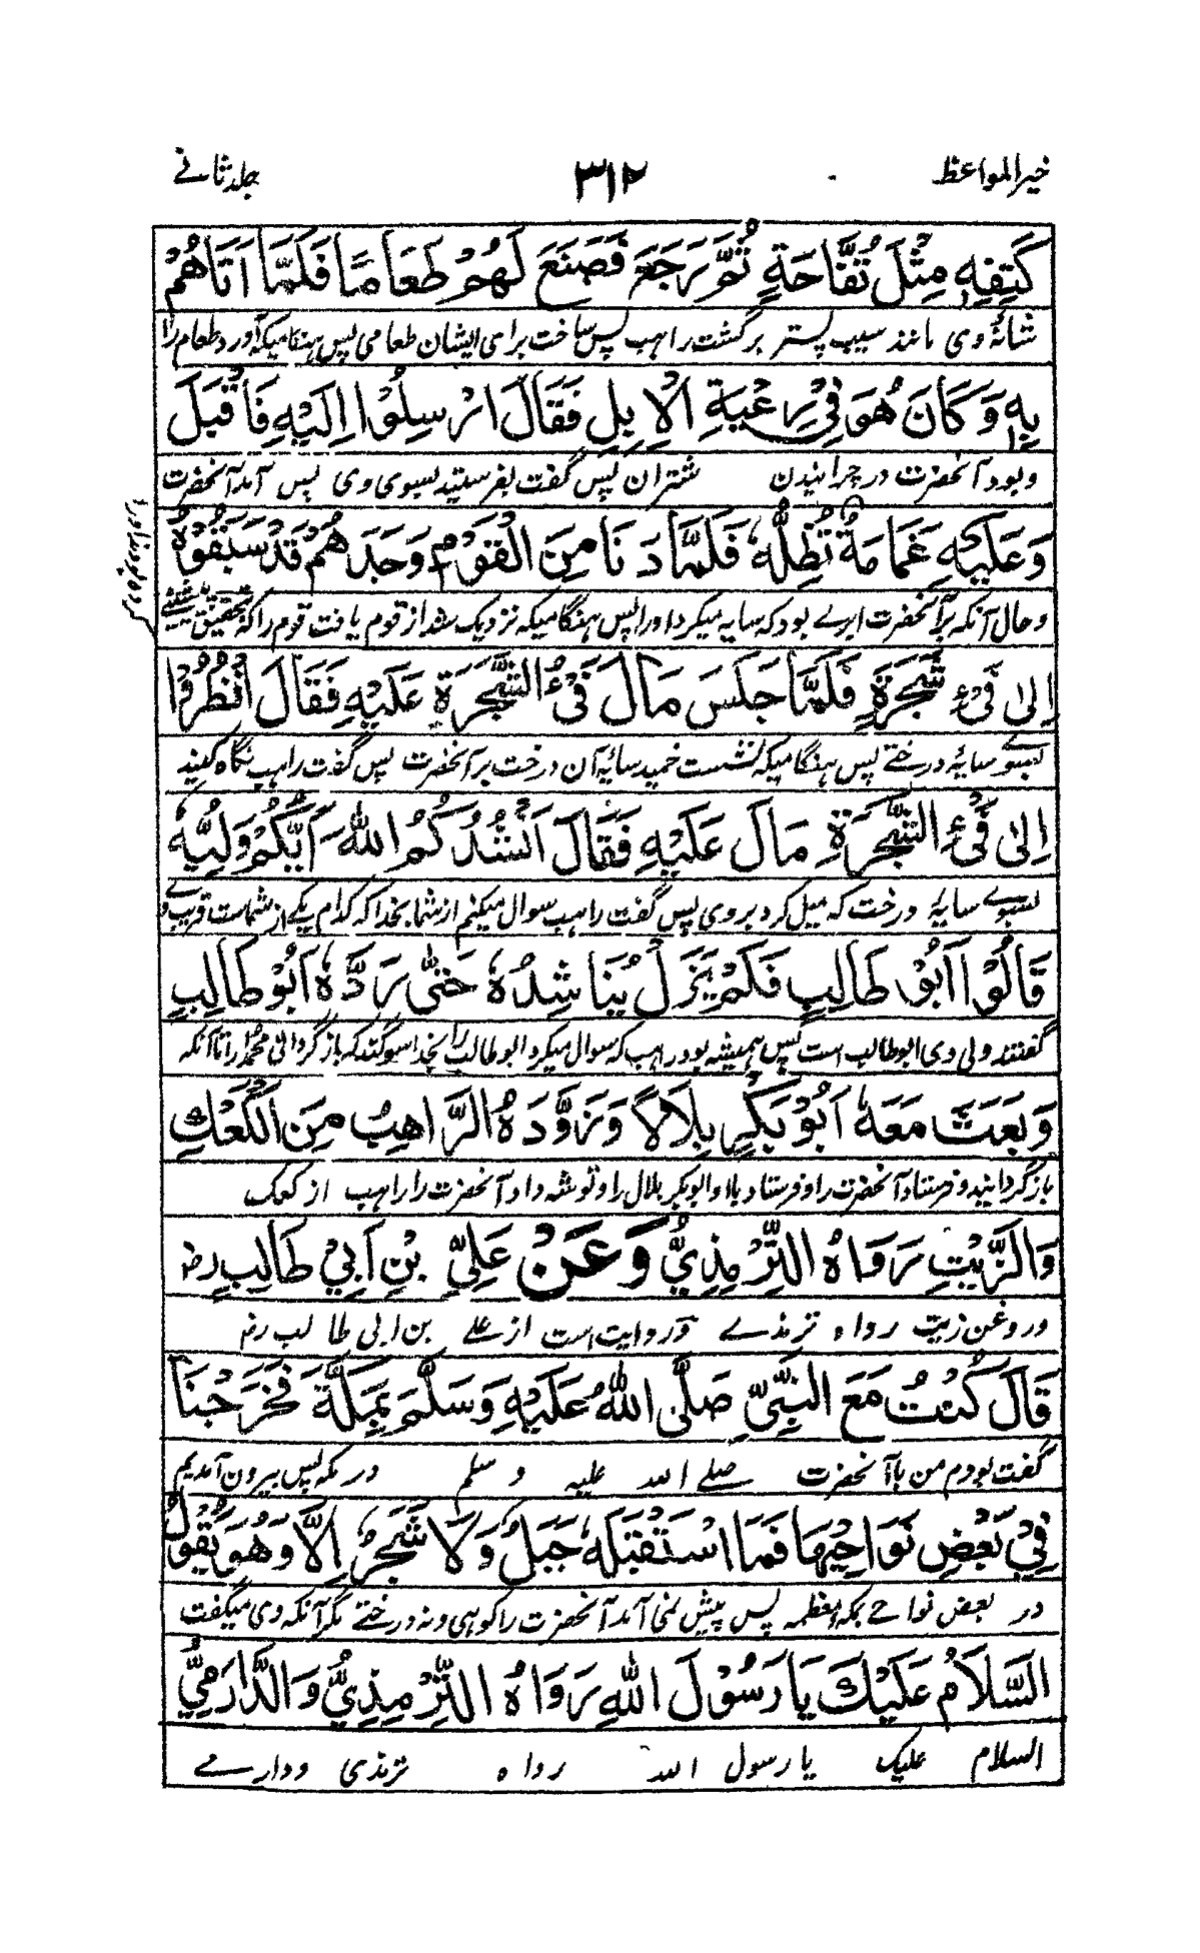 خیر المواعظ ۳۱۲ جلد ثانے
كَتِفِهٖ مِثْلَ تُفَّاحَةٍ ثُمَّ رَجَعَ فَصَنَعَ لَهُمْ طَعَامًا فَلَمَّا اَتَاهُمْ
شانۂ وی مانند سیب پستر برگشت راہب پس ساخت برای ایشان طعامی پس ہنگامیکہ آورد طعام را
بِهٖ وَكَانَ هُوَ فِيْ رِعْيَةِ الْاِبِلِ فَقَالَ اَرْسِلُوْا اِلَيْهِ فَاَقْبَلَ
وبود آنحضرت در چرانیدن شتران پس گفت بفرستید بسوی وی پس آمد آنحضرت
وَعَلَيْهِ غَمَامَةٌ تُظِلُّهٗ فَلَمَّا دَنَا مِنَ الْقَوْمِ وَجَدَهُمْ قَدْ سَبَقُوْهُ
وحال آنکہ بر آنحضرت ابرے بود کہ سایہ میکرد اورا پس ہنگامیکہ نزدیک شد از قوم یافت قوم را کہ بتحقیق
اِلٰى فَيْءِ شَجَرَةٍ فَلَمَّا جَلَسَ مَالَ فَيْءُ الشَّجَرَةِ عَلَيْهِ فَقَالَ اُنْظُرُوْا
بسوے سایۂ درختے پس ہنگامیکہ نشست خمید سایۂ آن درخت بر آنحضرت پس گفت راہب نگاہ کنید
اِلٰى فَيْءِ الشَّجَرَةِ مَالَ عَلَيْهِ فَقَالَ اَنْشُدُكُمُ اللهَ اَيُّكُمْ وَلِيُّهٗ
بسوے سایۂ درخت کہ میل کرد بر وی پس گفت راہب سوال میکنم از شما بخدا کہ کدام یکے از شماست قریب
قَالُوْا اَبُوْ طَالِبٍ فَلَمْ يَزَلْ يُنَاشِدُهٗ حَتّٰى رَدَّهٗ اَبُوْ طَالِبٍ
گفتند ولی وی ابو طالب است پس ہمیشہ بود راہب کہ سوال میکرد ابو طالب را بخدا سوگند کہ باز گردانی محمد را تا آنکہ
وَبَعَثَ مَعَهٗ اَبُوْ بَكْرٍ بِلَالًا وَزَوَّدَهُ الرَّاهِبُ مِنَ الْكَعْكِ
باز گردانید و فرستاد آنحضرت را و فرستاد با او ابو بکر بلال را و توشہ داد آنحضرت را راہب از کعک
وَالزَّيْتِ رَوَاهُ التِّرْمِذِيُّ وَعَنْ عَلِيِّ بْنِ اَبِيْ طَالِبٍ رض
و روغن زیت رواہ ترمذے و روایت است از علے بن ابی طالب رض
قَالَ كُنْتُ مَعَ النَّبِيِّ صَلَّى اللهُ عَلَيْهِ وَسَلَّمَ بِمَكَّةَ فَخَرَجْنَا
گفت بودم من با آنحضرت صلے اللہ علیہ و سلم در مکہ پس بیرون آمدیم
فِيْ بَعْضِ نَوَاحِيْهَا فَمَا اسْتَقْبَلَهٗ جَبَلٌ وَلَا شَجَرٌ اِلَّا وَهُوَ يَقُوْلُ
در بعض نواحے مکہ معظمہ پس پیش نمی آمد آنحضرت را کوہی و نہ درختے مگر آنکہ وی میگفت
السَّلَامُ عَلَيْكَ يَا رَسُوْلَ اللهِ رَوَاهُ التِّرْمِذِيُّ وَالدَّارَمِيُّ
السلام علیک یا رسول اللہ رواہ ترمذی و دارمے